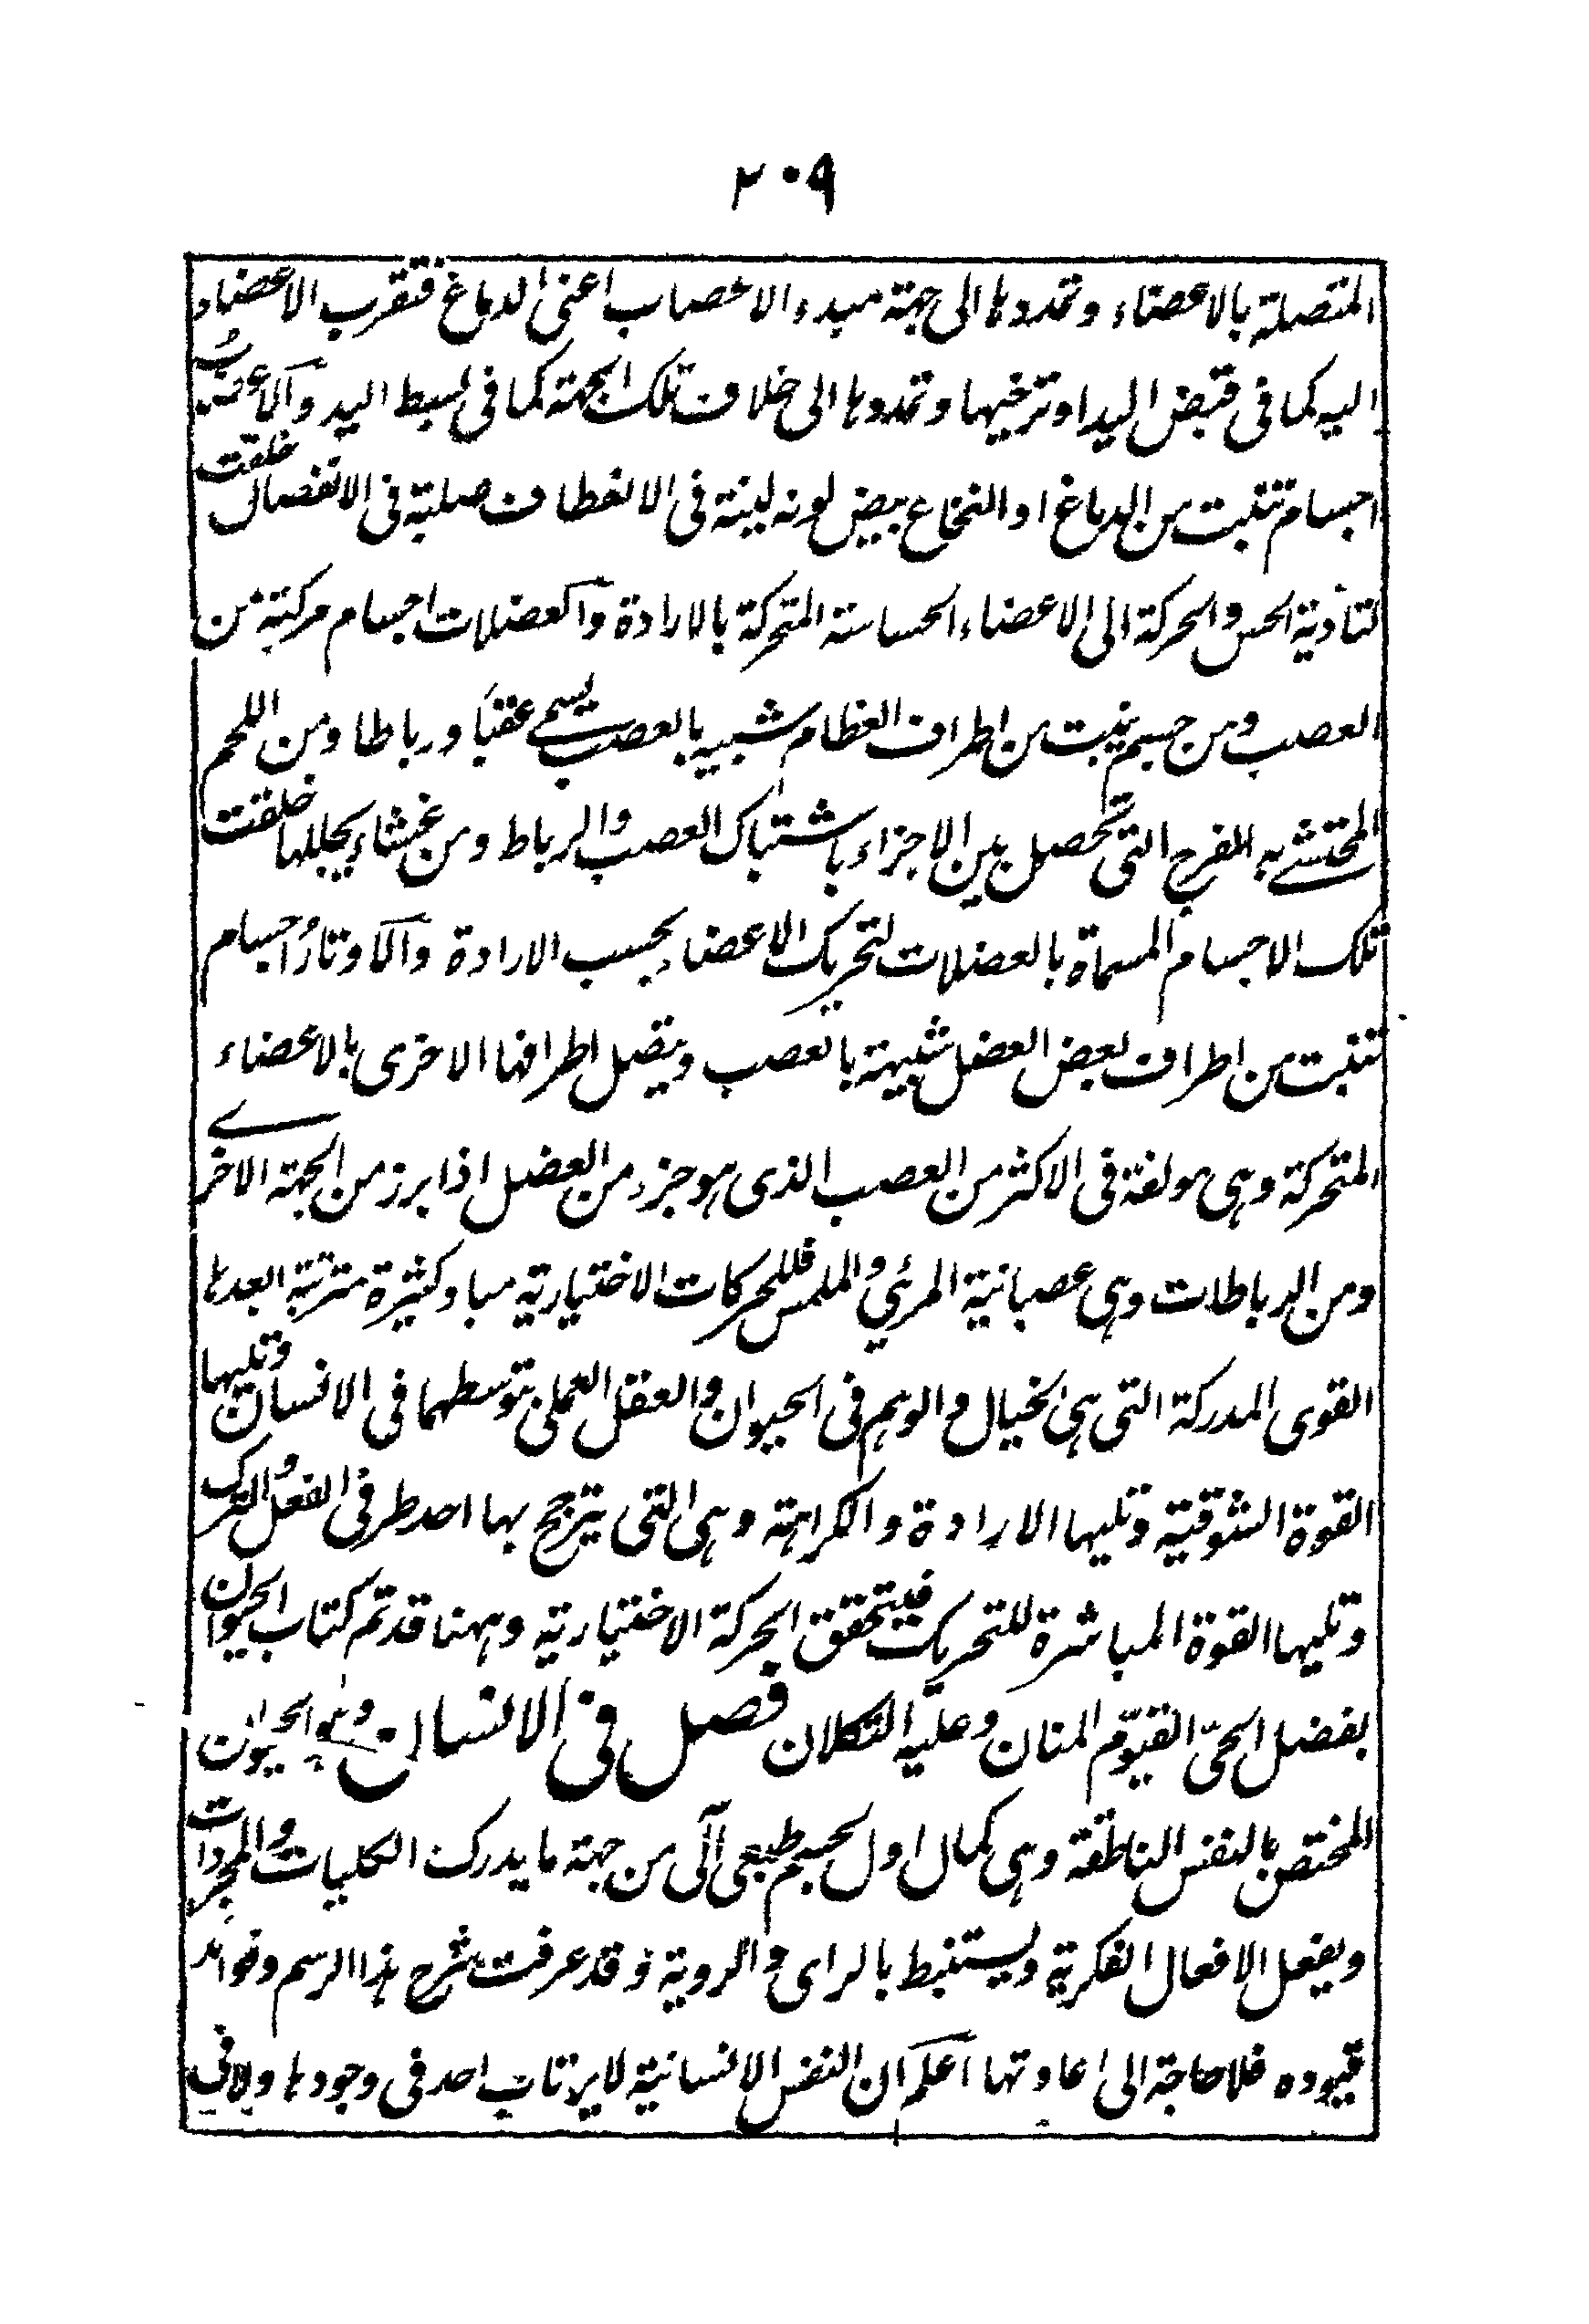 ٢٠٩
المتصلة بالاعضاء وتمددها الى جهة مبدء الاعصاب اعنى الدماغ فتقرب الاعضاء
اليه كما فى قبض اليد او ترخيها وتمددها الى خلاف تلك الجهة كما فى بسط اليد والاعصاب
اجسام تنبت من الدماغ او النخاع بيض لونه لينة فى الانعطاف صلبة فى الانفصال خلقت
لتادية الحس والحركة الى الاعضاء الحساسة المتحركة بالارادة والعضلات اجسام مركبة من
العصب ومن جسم ينبت من اطراف العظام شبيه بالعصب يسمى عقبًا ورباطا ومن اللحم
المحتشى به الفرج التى تحصل بين الاجزاء باشتباك العصب والرباط ومن غشاء يجللها خلقت
تلك الاجسام المسماة بالعضلات لتحريك الاعضاء بحسب الارادة والاوتارُ اجسام
تنبت من اطراف بعض العضل شبيهة بالعصب ويتصل اطرافها الاخرى بالاعضاء
المتحركة وهى مولفة فى الاكثر من العصب الذى هو جزء من العضل اذا برز من الجهة الاخرى
ومن الرباطات وهى عصبانية المرئي والملمس فللحركات الاختيارية مباد كثيرة مترتبة ابعدها
القوى المدركة التى هى الخيال والوهم فى الحيوان والعقل العملى بتوسطهما فى الانسان وتليها
القوة الشوقية وتليها الارادة والكراهة وهى التى يترجح بها احد طرفى الفعل والترك
وتليها القوة المباشرة للتحريك فيتحقق الحركة الاختيارية وههنا قد تم كتاب الحيوان
بفضل الحىّ القيوّم المنان وعليه التكلان فصل فى الانسان وهو الحيوان
المختص بالنفس الناطقة وهى كمال اول لجسم طبعى آلى من جهة ما يدرك الكليات والمجردات
ويفعل الافعال الفكرية ويستنبط بالراى والروية وقد عرفت شرح هذا الرسم وفوائد
قيوده فلا حاجة الى اعادتها اعلم ان النفس الانسانية لا يرتاب احد فى وجودها ولا فى